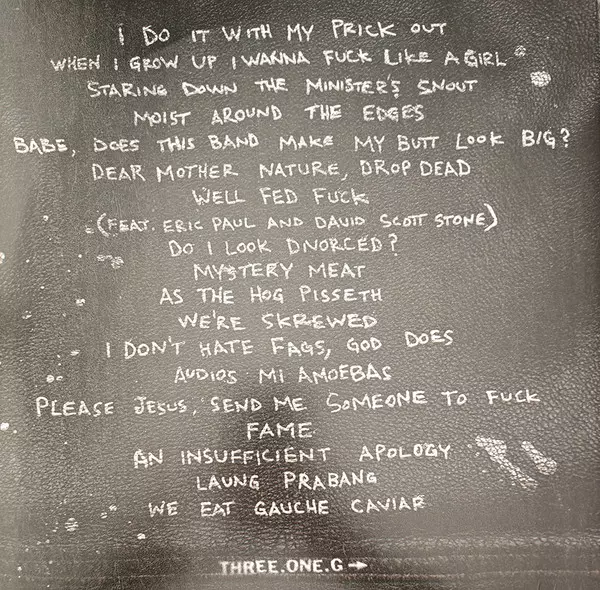 I DO IT WITH MY PRICK OUT
WHEN I GROW UP I WANNA FUCK LIKE A GIRL
STARING DOWN THE MINISTER'S SNOUT
MOIST AROUND THE EDGES
BABE, DOES THIS BAND MAKE MY BUTT LOOK BIG?
DEAR MOTHER NATURE, DROP DEAD
WELL FED FUCK
(FEAT. ERIC PAUL AND DAVID SCOTT STONE)
DO I LOOK DIVORCED?
MYSTERY MEAT
AS THE HOG PISSETH
WE'RE SKREWED
I DON'T HATE FAGS, GOD DOES
AUDIOS MI AMOEBAS
PLEASE JESUS, SEND ME SOMEONE TO FUCK
FAME
AN INSUFFICIENT APOLOGY
LAUNG PRABANG
WE EAT GAUCHE CAVIAR
THREE.ONE.G→